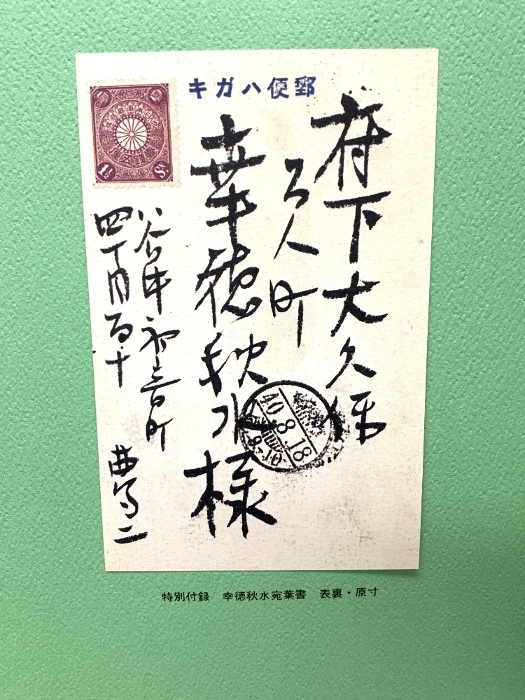 郵便ハガキ
府下大久保
百人町
幸徳秋水様
谷中初音町
四丁目百十
40.8.18
特別付録 幸徳秋水宛葉書 表裏・原寸